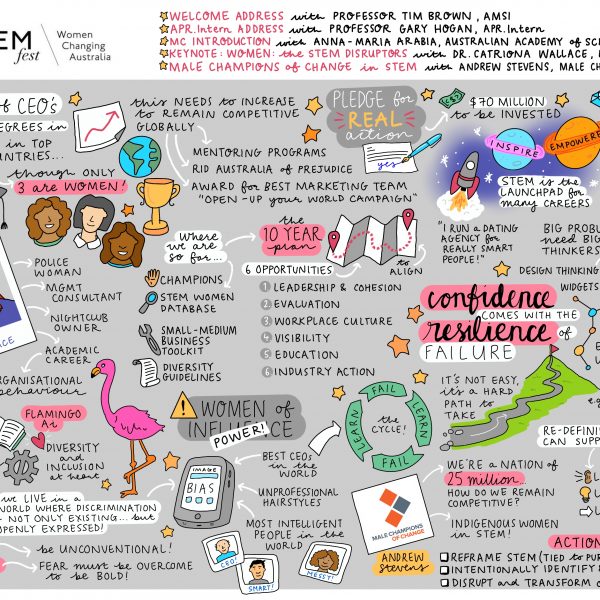 EM
fest
Women
Changing
Australia
WELCOME ADDRESS with PROFESSOR TIM BROWN, AMSI
APR.Intern ADDRESS with PROFESSOR GARY HOGAN, APR.Intern
MC INTRODUCTION with ANNA-MARIA ARABIA, AUSTRALIAN ACADEMY of SC
KEYNOTE: WOMEN: the STEM DISRUPTORS with DR. CATRIONA WALLACE,
MALE CHAMPIONS of CHANGE in STEM with ANDREW STEVENS, MALE CH
of CEO's
DEGREES in
in TOP
NTRIES...
though ONLY
3 are WOMEN!
this NEEDS to INCREASE
to REMAIN COMPETITIVE
GLOBALLY
MENTORING PROGRAMS
RID AUSTRALIA of PREJUDICE
AWARD for BEST MARKETING TEAM
"OPEN-UP your WORLD CAMPAIGN"
PLEDGE for
REAL
action
yes
$70 MILLION
to be INVESTED
INSPIRE
EMPOWERE
STEM is the
LAUNCHPAD for
MANY CAREERS
"I RUN a DATING
AGENCY for
REALLY SMART
PEOPLE!"
BIG PROBL
need BIG
THINKERS
DESIGN THINKING
WIDGETS
POLICE
WOMAN
MGMT
CONSULTANT
NIGHTCLUB
OWNER
ACADEMIC
CAREER
ORGANISATIONAL
behaviour
Where
we are
so far...
CHAMPIONS
STEM WOMEN
DATABASE
SMALL-MEDIUM
BUSINESS
TOOLKIT
DIVERSITY
GUIDELINES
the
10 YEAR
plan
to
ALIGN
6 OPPORTUNITIES
1 LEADERSHIP & COHESION
2 EVALUATION
3 WORKPLACE CULTURE
4 VISIBILITY
5 EDUCATION
6 INDUSTRY ACTION
confidence
COMES with the
resilience of
FAILURE
IT'S NOT EASY,
it's a HARD
PATH to
TAKE
RE-DEFINI
CAN SUPP
FLAMINGO
Ai
DIVERSITY
and
INCLUSION
at heart
we LIVE in a
WORLD WHERE DISCRIMINATION
NOT ONLY EXISTING... but
OPENLY EXPRESSED!
be UNCONVENTIONAL!
FEAR must be OVERCOME
to be BOLD!
WOMEN of
INFLUENCE
POWER!
IMAGE
BIAS
BEST CEOs
in the
WORLD
UNPROFESSIONAL
HAIRSTYLES
MOST INTELLIGENT
PEOPLE in the
WORLD
CEO!
SMART!
MESSY!
FAIL
LEARN
FAIL
LEARN
the
CYCLE!
MALE CHAMPIONS
OF CHANGE
ANDREW
Stevens
WE'RE a NATION of
25 million...
HOW DO WE REMAIN
COMPETITIVE?
INDIGENOUS WOMEN
in STEM!
ACTION
REFRAME STEM (TIED to PUR
INTENTIONALLY IDENTIFY &
DISRUPT and TRANSFORM